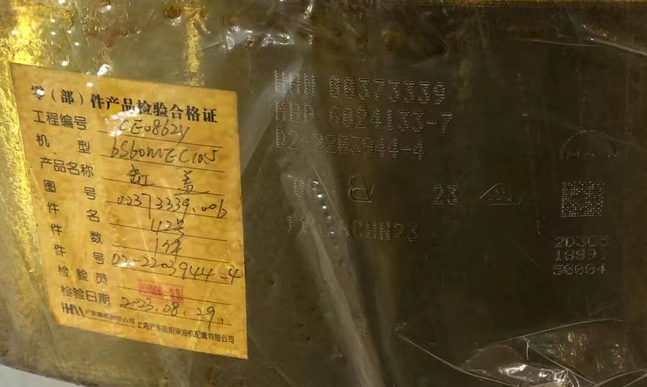 零（部）件产品检验合格证
工程编号 CE0862Y
机 型 6S60MEC10.5
产品名称 缸 盖
图 号 00373339.006
件 名 42号
件 数 1件
件 号 D2-2203944-4
检验员
检验日期 2023.08.29.
HHM 广东 上海广东 柴油机配套有限公司
HHM 00373339
NBD 6824133-7
D2-2203944-4
06 23
20303
18891
50004